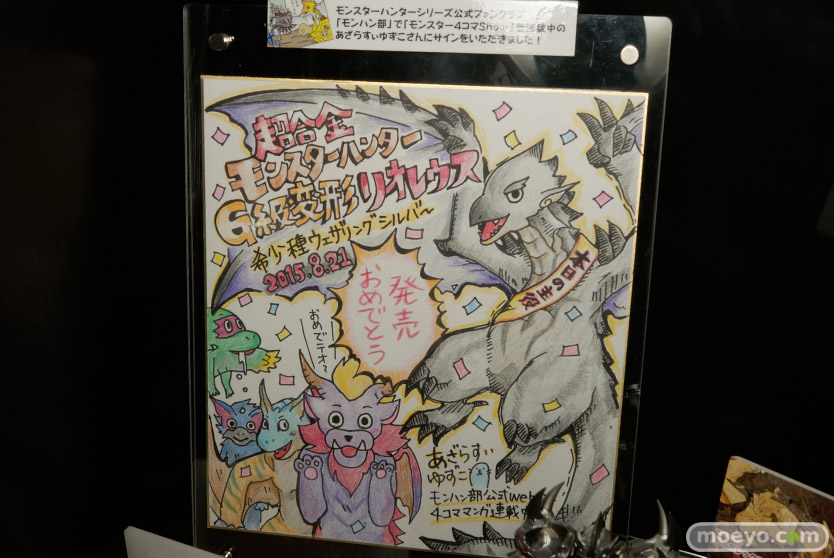 モンスターハンターシリーズ公式ファンクラブ
「モンハン部」で「モンスター4コマShow」を連載中の
あざらすぃゆずこさんにサインをいただきました!
超合金
モンスターハンター
G級変形リオレウス
希少種ウェザリングシルバー
2015.8.21
発売
おめでとう
本日の主役
おめでテオ〜
あざらすぃ
ゆずこ
モンハン部公式web
4コママンガ連載中
moeyo.com